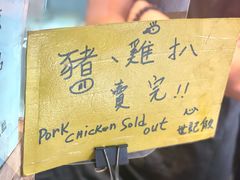 豬、雞扒
賣完!!
Pork Chicken Sold out
世記飯